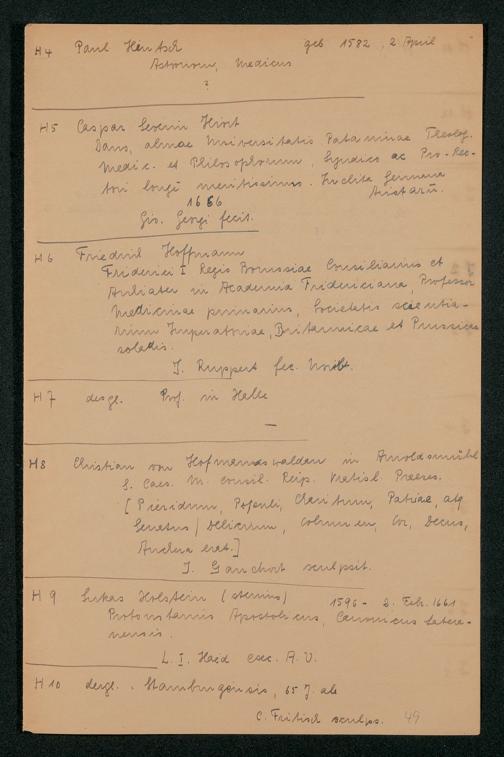 H4 Paul Hentsch geb 1582, 2. April
Astronom, Medicus
?
H5 Caspar Severin Hirt
Dans, almae Universitatis Pataminae Theolog.
Medic. et Philosophorum, Syndico ac Pro-Rec-
tori longe meritissimo. Inclita Germana
1656
Gio. Georgi fecit.
H6 Friedrich Hoffmann
Friderici I Regis Borussiae Consiliarius et
Archiater in Academia Fridericiana, Professor
Medicinae primarius, Societatis scientia-
rum Imperatoriae, Britannicae et Prussicae
sodalis.
J. Ruppert fec. Norib.
H7 desgl. Prof. in Halle
—
H8 Christian von Hofmannswaldau in Arnoldsmühl
S. Caes. M. Consil. Reip. Vratisl. Praeses.
[Pieridum, Charitum, Patriae, atq
Senatus / Delicium, Columen, Cor, Decus,
Anchora erat.]
J. sculpsit.
H9 Lukas Holstein (stenius) 1596 - 2. Feb. 1661
Protonotarius Apostolicus, Canonicus Latera-
nensis.
L. I. Haid exc. A. V.
H10 desgl. Hamburgensis, 65 J. alt
C. Fritzsch sculps. 49